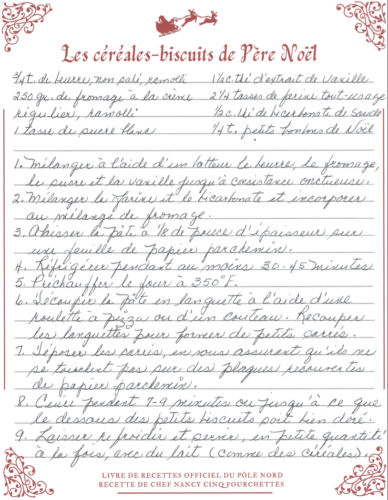 Les céréales-biscuits de Père Noël
3/4 t. de beurre, non salé, ramolli
250 gr. de fromage à la crème
régulier, ramolli
1 tasse de sucre blanc
1 1/2 c. thé d'extrait de vanille
2 1/4 tasses de farine tout-usage
1/2 c. thé de bicarbonate de soude
1/4 t. petits bonbons de Noël
1. Mélanger à l'aide d'un batteur le beurre, le fromage,
le sucre et la vanille jusqu'à consistance onctueuse.
2. Mélanger la farine et le bicarbonate et incorporer
au mélange de fromage.
3. Abaisser la pâte à 1/8 de pouce d'épaisseur sur
une feuille de papier parchemin.
4. Réfrigérer pendant au moins 30-45 minutes
5. Préchauffer le four à 350°F.
6. Découper la pâte en languette à l'aide d'une
roulette à pizza ou d'un couteau. Recouper
les languettes pour former de petits carrés.
7. Déposer les carrés, en vous assurant qu'ils ne
se touchent pas sur des plaques recouvertes
de papier parchemin.
8. Cuire pendant 7-9 minutes ou jusqu'à ce que
le dessous des petits biscuits soit bien doré.
9. Laisser refroidir et servir, en petite quantité
à la fois, avec du lait (comme des céréales).
LIVRE DE RECETTES OFFICIEL DU PÔLE NORD
RECETTE DE CHEF NANCY CINQ FOURCHETTES